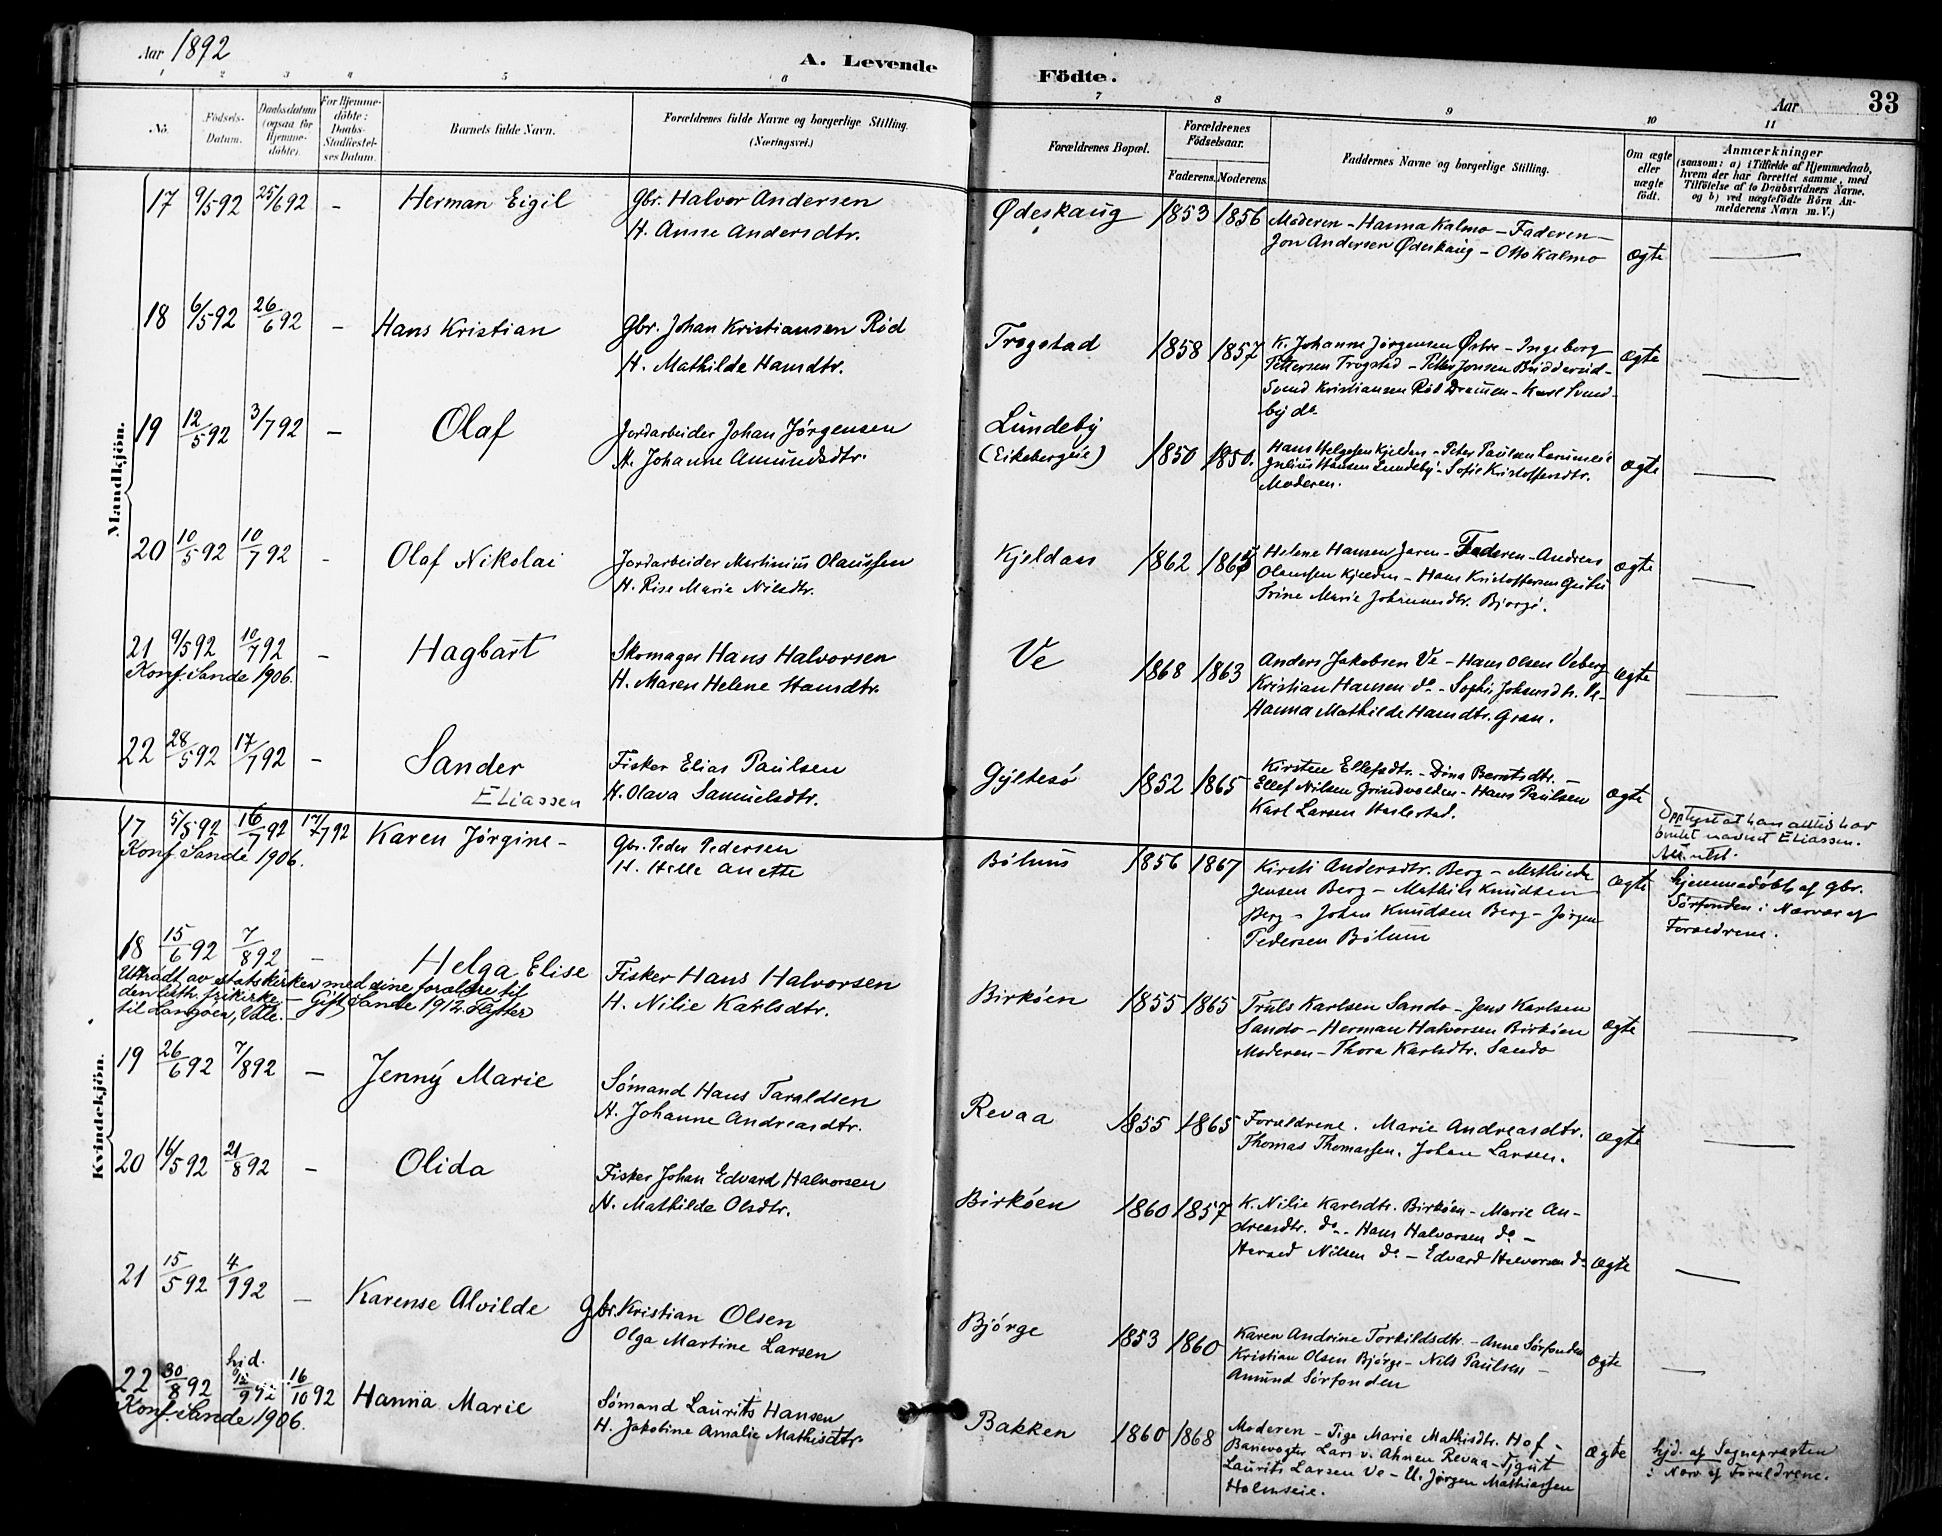 Aar 1892
A. Levende
Födte.
Aar
33
1 2 3 4 5 6 7 8 9 10 11
No.
Födsels-
Datum.
Daabsdatum
(ogsaa for
Hjemme-
döbte).
For Hjemme-
döbte:
Daabs-
Stadfæstel-
ses Datum.
Barnets fulde Navn.
Forældrenes fulde Navne og borgerlige Stilling.
(Næringsvei.)
Forældrenes Bopæl.
Forældrenes
Födselsaar.
Faderens. Moderens.
Faddernes Navne og borgerlige Stilling.
Om ægte
eller
uægte
födt.
Anmærkninger
(saasom: a) i Tilfælde af Hjemmedaab,
hvem der har forrettet samme, med
Tilföielse af to Daabsvidners Navne,
og b) ved uægtefödte Börn An-
melderens Navn m. V.)
Mandkjön.
17 9/5 92 25/6 92 – Herman Eigil
Gbr. Halvor Andersen
H. Anne Andersdtr.
Ødeskaug 1853 1856
Moderen – Hanna Kalmo – Faderen –
Jon Andersen Ødeskaug – Otto Kalmo
ægte —
18 6/5 92 26/6 92 – Hans Kristian
Gbr. Johan Kristiansen Rød
H. Mathilde Hansdtr.
Trogstad 1858 1857
K. Johanne Jørgensen Østre – Ingeborg
Pettersen Trogstad – Petter Jonsen Budderud –
Svend Kristiansen Rød Drammen – Karl Svend-
by do.
ægte —
19 12/5 92 3/7 92 – Olaf
Jordarbeider Johan Jørgensen
H. Johanne Amundsdtr.
Lundeby
(Eikebergeie) 1850 1850.
Hans Helgesen Kjelden – Peter Paulsen
Julius Hansen Lundeby – Sofie Kristoffersdtr.
Moderen.
ægte —
20 10/5 92 10/7 92 – Olaf Nikolai
Jordarbeider Martinius Olaussen
H. Rise Marie Nilsdtr.
Kjeldaas 1862 1865
Helene Hansen Jaren – Faderen – Andreas
Olaussen Kjelden – Hans Kristoffersen
Trine Marie Johannesdtr. Bjørge.
ægte —
21 9/5 92 10/7 92 – Hagbart
Konf. Sande 1906.
Skomager Hans Halvorsen
H. Maren Helene Hansdtr.
Ve 1868 1863
Anders Jakobsen Ve – Hans Olsen Veberg
Kristian Hansen do – Sophie Johansdtr. Ve –
Hanna Mathilde Hansdtr. Gran.
ægte —
22 28/5 92 17/7 92 – Sander
Eliassen
Fisker Elias Paulsen
H. Olava Samuelsdtr.
Gyltesø 1852 1865
Kirsten Ellefsdtr. – Dina Berntsdtr. –
Ellef Nilsen Grindvolden – Hans Paulsen
Karl Larsen
ægte
Opplyst at han alltid har
brukt navnet Eliassen.
Kvindekjön.
17 5/5 92 16/7 92 17/7 92 Karen Jørgine –
Konf. Sande 1906.
Gbr. Peder Pedersen
H. Helle Anette
Bølum 1856 1867
Kirsti Andersdtr. Berg – Mathilde
Jensen Berg – Mathis Knudsen
Berg – Johan Knudsen Berg – Jørgen
Pedersen Bølum
ægte
hjemmedøbt af gbr.
Sørfonden i Nærvær af
Forældrene.
18 15/6 92 7/8 92 – Helga Elise
Uttrådt av statskirken med sine forældre til
den luth. frikirke. – Gift Sande 1912. Flytter
til Langøen, Våle.
Fisker Hans Halvorsen
H. Nilie Karlsdtr.
Birkøen 1855 1865
Truls Karlsen Sando – Jens Karlsen
Sando – Herman Halvorsen Birkøen
Moderen – Thora Karlsdtr. Sando
ægte —
19 26/6 92 7/8 92 – Jenny Marie
Sømand Hans Taraldsen
H. Johanne Andreasdtr.
Revaa 1855 1865
Forældrene. Marie Andreasdtr.
Thomas Thomassen. Johan Larsen.
ægte —
20 14/5 92 21/8 92 – Olida
Fisker Johan Edvard Halvorsen
H. Mathilde Olsdtr.
Birkøen 1860 1857
K. Nilie Karlsdtr. Birkøen – Marie An-
dreasdtr. do – Hans Halvorsen do –
Nilsen do – Edvard Halvorsen do
ægte —
21 15/5 92 4/9 92 – Karense Alvilde
Gbr. Kristian Olsen
Olga Martine Larsen
Bjørge 1853 1860
Karen Andrine Torkildsdtr. – Anne Sørfonden
Kristian Olsen Bjørge – Nils Paulsen –
Amund Sørfonden
ægte —
22 30/8 92 hjd. 12/9 92 16/10 92 Hanna Marie
Konf. Sande 1906.
Sømand Laurits Hansen
H. Jakobine Amalie Mathisdtr.
Bakken 1860 1868
Moderen – Pige Marie Mathisdtr. Hof –
Banevogter Lars Revaa –
Laurits Larsen Ve – U. Jørgen Mathiassen
Holmseie.
ægte
hjd. af Sognepræsten
i Nærv. af Forældrene.